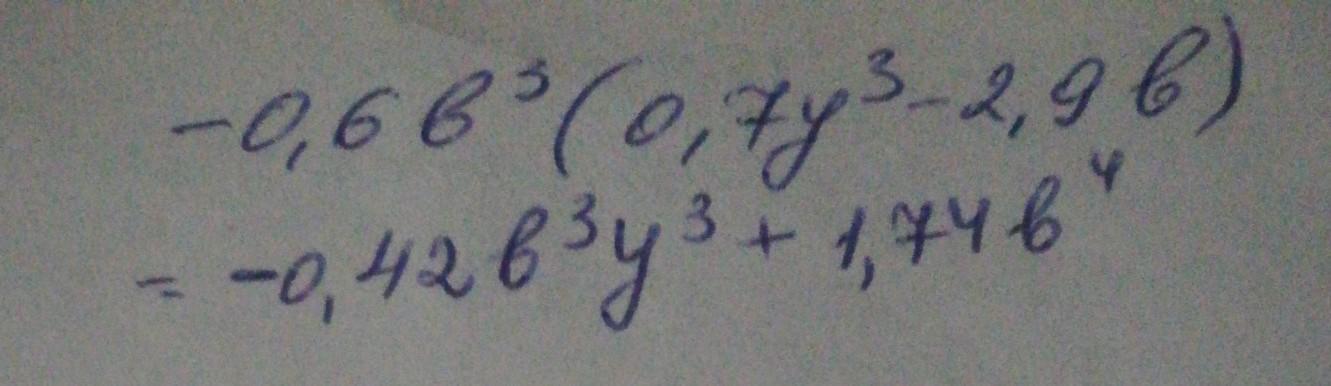 -0,6 b³(0,7y³-2,9 b)
= -0,42b³y³ + 1,74b⁴